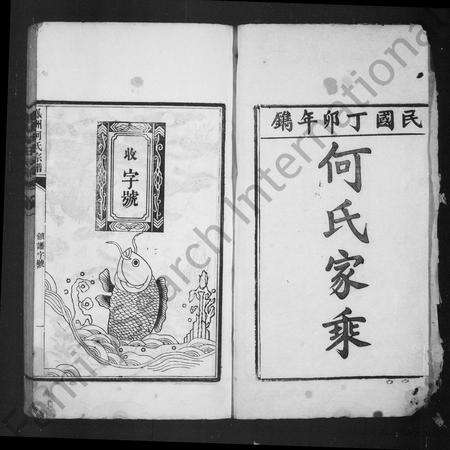 民國丁卯年鐫
何氏家乘
收字號
領譜字號
Family Search International